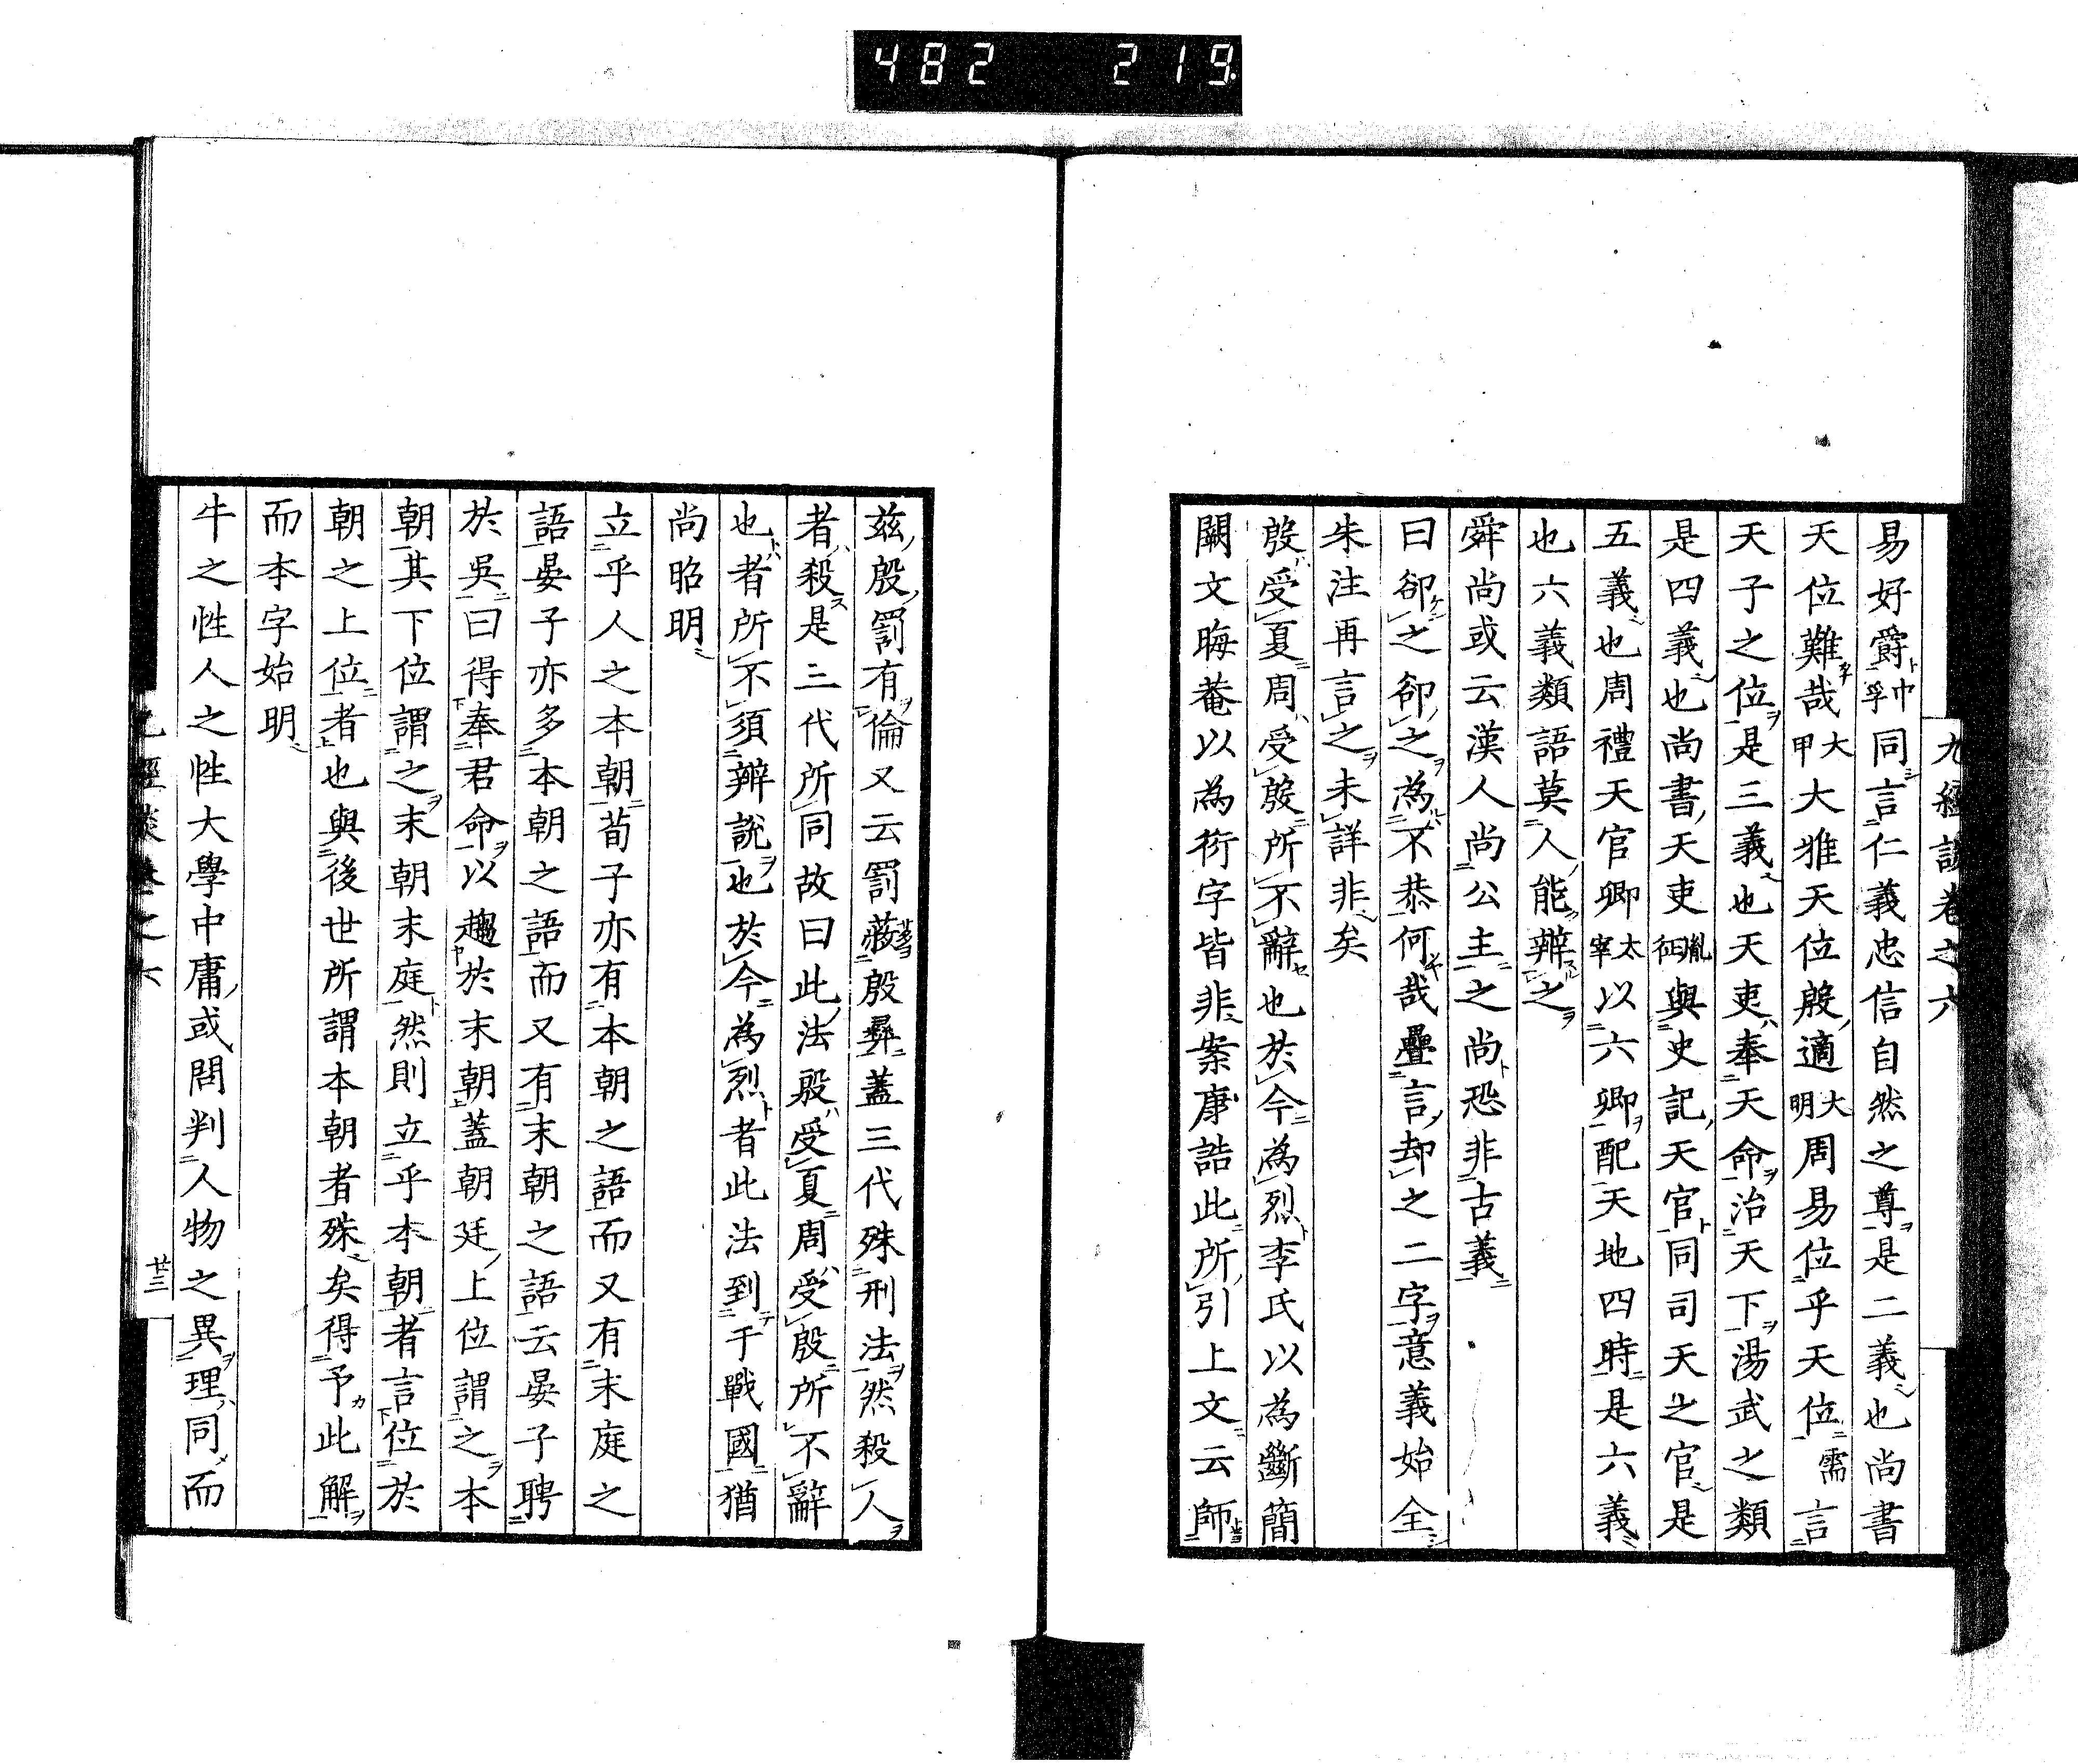 482 219
九經談卷之六
易好爵中孚同言仁義忠信自然之尊是二義也尚書
天位難哉大甲大雅天位殷適大明周易位乎天位需言
天子之位是三義也天吏奉天命治天下湯武之類
是四義也尚書天吏胤征與史記天官同司天之官是
五義也周禮天官卿太宰以六卿配天地四時是六義
也六義類語莫人能辨之
舜尚或云漢人尚公主之尚恐非古義
曰卻之卻之為不恭何哉疊言却之二字意義始全
朱注再言之未詳非矣
殷受夏周受殷所不辭也於今為烈李氏以為斷簡
闕文晦菴以為衍字皆非案康誥此所引上文云師
茲殷罰有倫又云罰蔽殷彝蓋三代殊刑法然殺人
者殺是三代所同故曰此法殷受夏周受殷所不辭
也者所不須辨說也於今為烈者此法到于戰國猶
尚昭明
立乎人之本朝荀子亦有本朝之語而又有末庭之
語晏子亦多本朝之語而又有末朝之語云晏子聘
於吳曰得奉君命以趨於末朝蓋朝廷上位謂之本
朝其下位謂之末朝末庭然則立乎本朝者言位於
朝之上位者也與後世所謂本朝者殊矣得予此解
而本字始明
牛之性人之性大學中庸或問判人物之異理同而
九經談卷之六
廿三